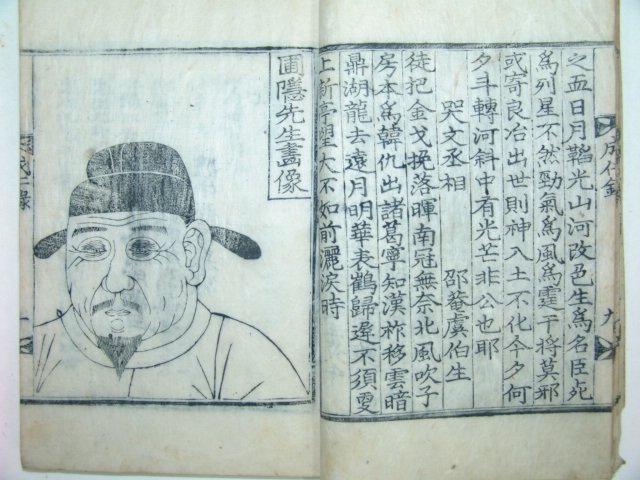 之五日月韜光山河改色生爲名臣死
爲列星不然勁氣爲風爲霆干將莫邪
或寄良冶出世則神入土不化今夕何
夕斗轉河斜中有光芒非公也耶
哭文丞相
邵菴虞伯生
徒把金戈挽落暉南冠無奈北風吹子
房本爲韓仇出諸葛寧知漢祚移雲暗
鼎湖龍去遠月明華表鶴歸遲不須更
上新亭望大不如前灑淚時
圃隱先生畵像
成仁錄
九